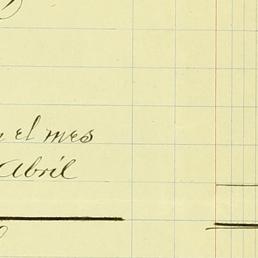 el mes
Abril